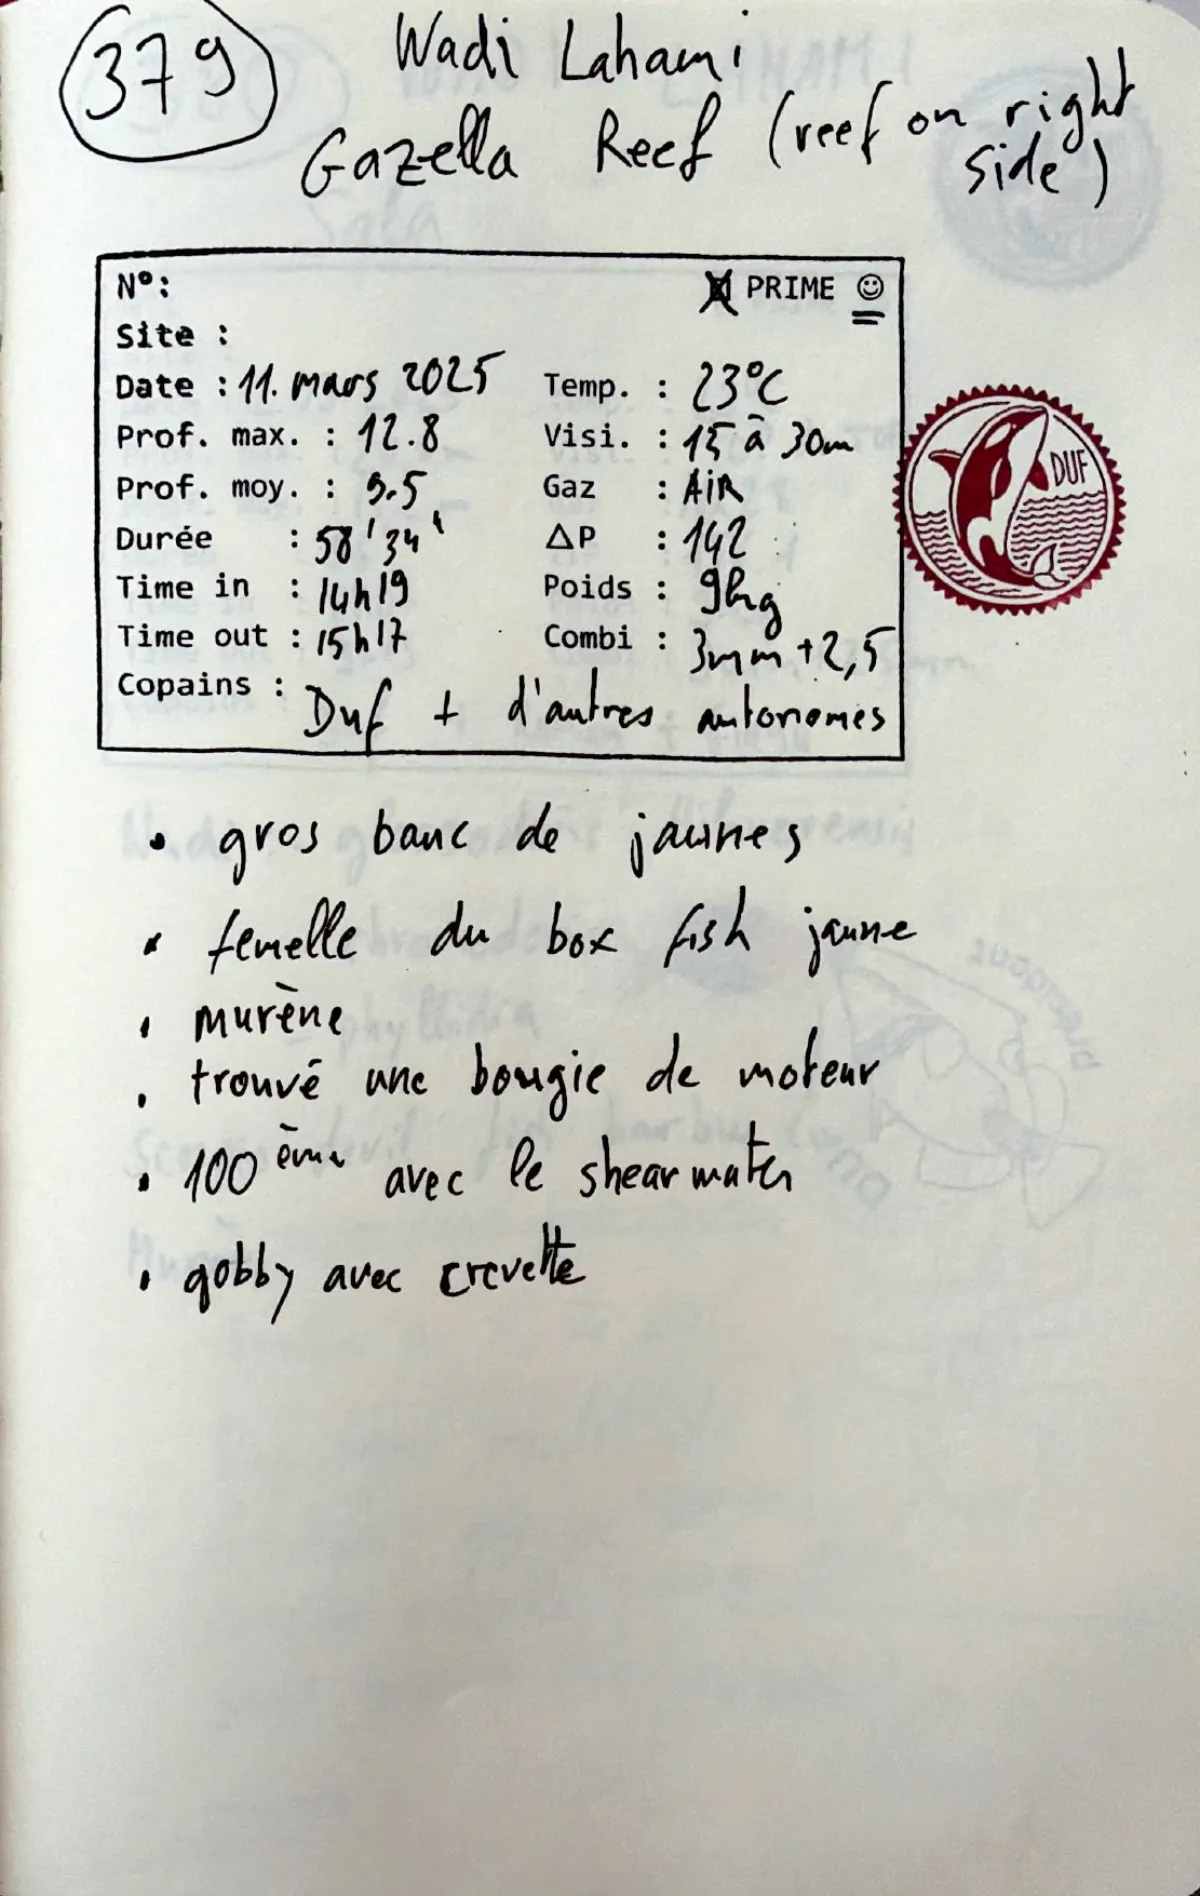 379
Wadi Lahami
Gazella Reef (reef on right side)
N°: PRIME
Site :
Date : 11. mars 2025 Temp. : 23°C
Prof. max. : 12.8 Visi. : 15 à 30m
Prof. moy. : 9.5 Gaz : AiR
Durée : 58'34' ΔP : 142
Time in : 14h19 Poids : 9kg
Time out : 15h17 Combi : 3mm + 2,5
Copains : Duf + d'autres autonomes
DUF
• gros banc de jaunes
• femelle du box fish jaune
• murène
• trouvé une bougie de moteur
• 100ème avec le shearwater
• gobby avec crevette